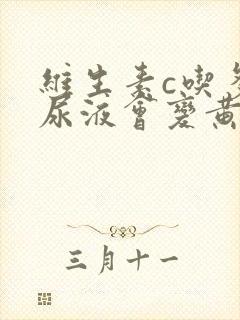 維生素c喫
尿液會變黃
三月十一